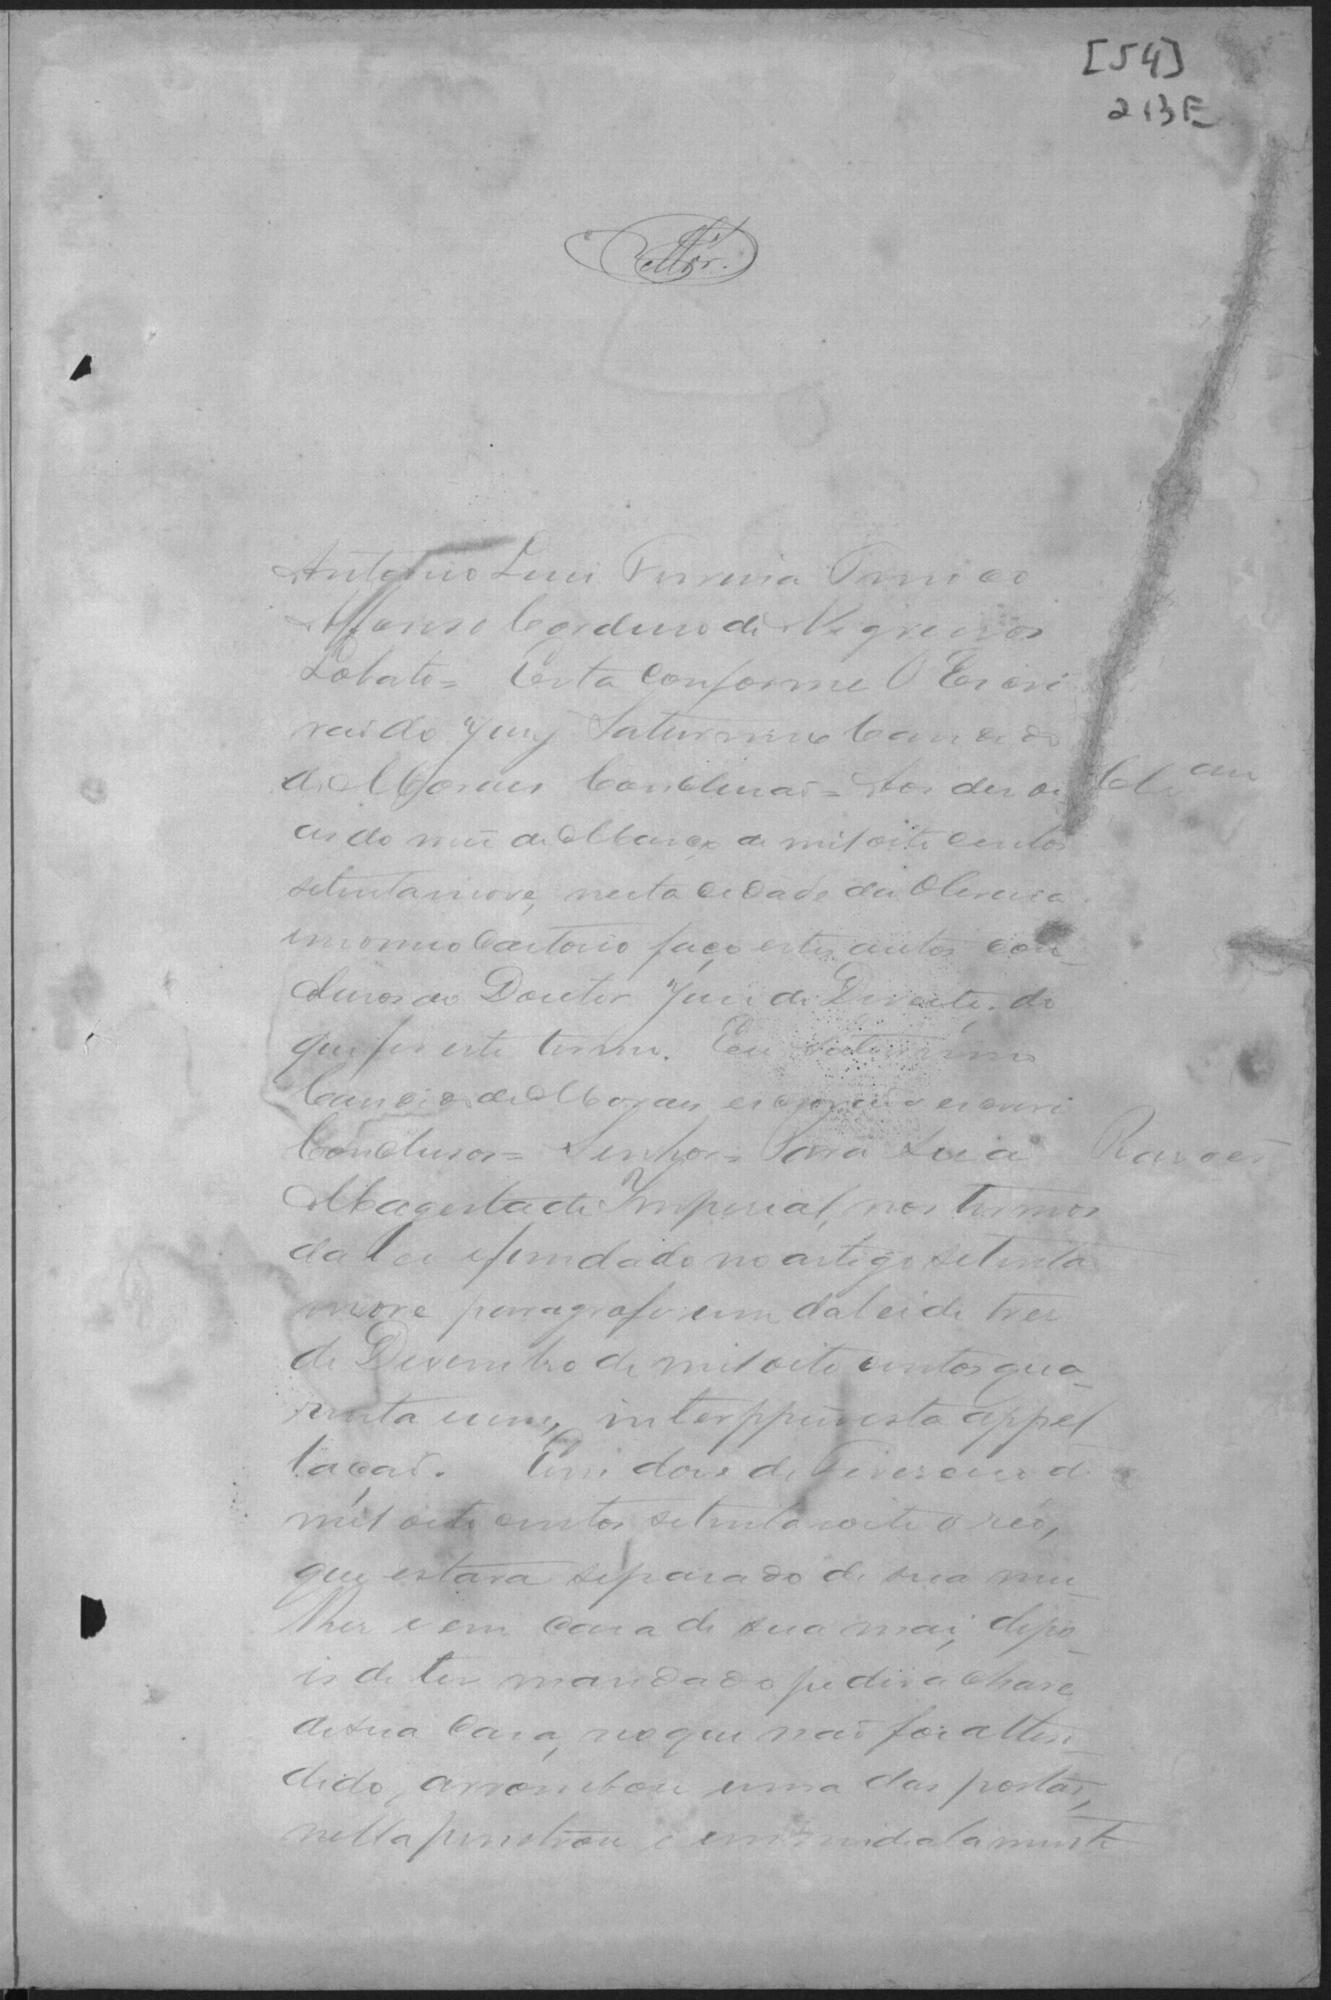 [54]
213E
Antonio Luis Ferreira Tinoco
Affonso Cordeiro de Negreiros
Lobato = Está conforme O Escri
vão do Jury Saturnino Candido
de Moraes Conclusão = Aos des di
Clsam
as do mes de Março de mil oito centos
setenta nove, nesta cidade da Oliveira
em o meu Cartorio faço estes autos con
clusos ao Doutor Juis de Direito, do
que fis este termo. Eu Saturnino
Candido de Moraes escrivão escrevi
Conclusos = Senhor = Para Sua
Rasoes
Magestade Imperial, nos termos
da lei e fundado no artigo setenta
nove paragrafo um da lei de tres
de Desembro de mil oito centos qua
renta e um, interpus esta appel
lação. Em dose de Fevereiro de
mil oito centos setenta e oito o réo,
que estava separado de sua mu
lher e em casa de sua mai, depo
is de ter mandado pedir a chave
de sua casa, no que não foi atten
dido, arrombou uma das portas,
nella penetrou e immidiatamente